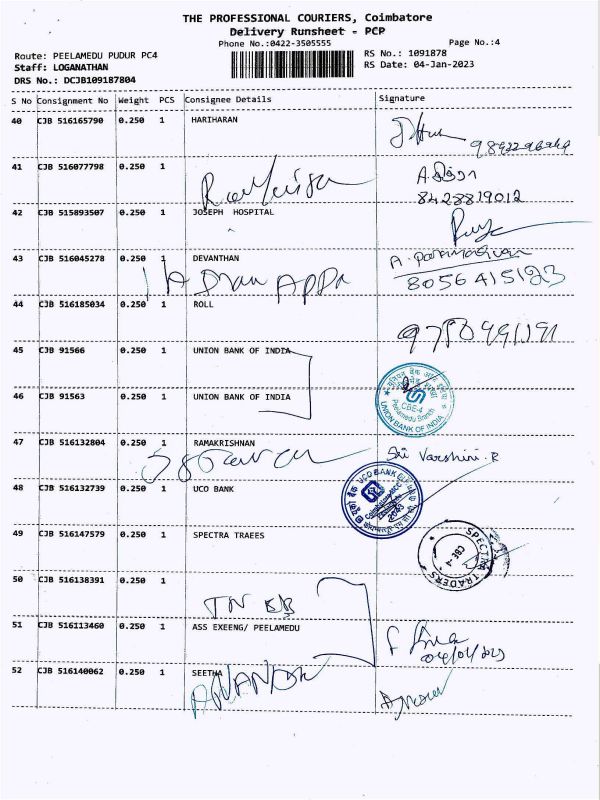 THE PROFESSIONAL COURIERS, Coimbatore
Delivery Runsheet - PCP
Phone No.:0422-3505555
Page No.:4
Route: PEELAMEDU PUDUR PC4
RS No.: 1091878
Staff: LOGANATHAN
RS Date: 04-Jan-2023
DRS No.: DCJB109187804
S No Consignment No Weight PCS Consignee Details Signature
40 CJB 516165790 0.250 1 HARIHARAN
41 CJB 516077798 0.250 1
8428819012
42 CJB 515893507 0.250 1 JOSEPH HOSPITAL
43 CJB 516045278 0.250 1 DEVANTHAN
8056415123
44 CJB 516185034 0.250 1 ROLL
45 CJB 91566 0.250 1 UNION BANK OF INDIA
46 CJB 91563 0.250 1 UNION BANK OF INDIA
CBE-4
Peelamedu Branch
UNION BANK OF INDIA
47 CJB 516132804 0.250 1 RAMAKRISHNAN
Sri Varshini. R
48 CJB 516132739 0.250 1 UCO BANK
UCO BANK
49 CJB 516147579 0.250 1 SPECTRA TRAEES
SPECTRA TRADERS
CBE-4
50 CJB 516138391 0.250 1
TN EB
51 CJB 516113460 0.250 1 ASS EXEENG/ PEELAMEDU
52 CJB 516140062 0.250 1 SEETHA